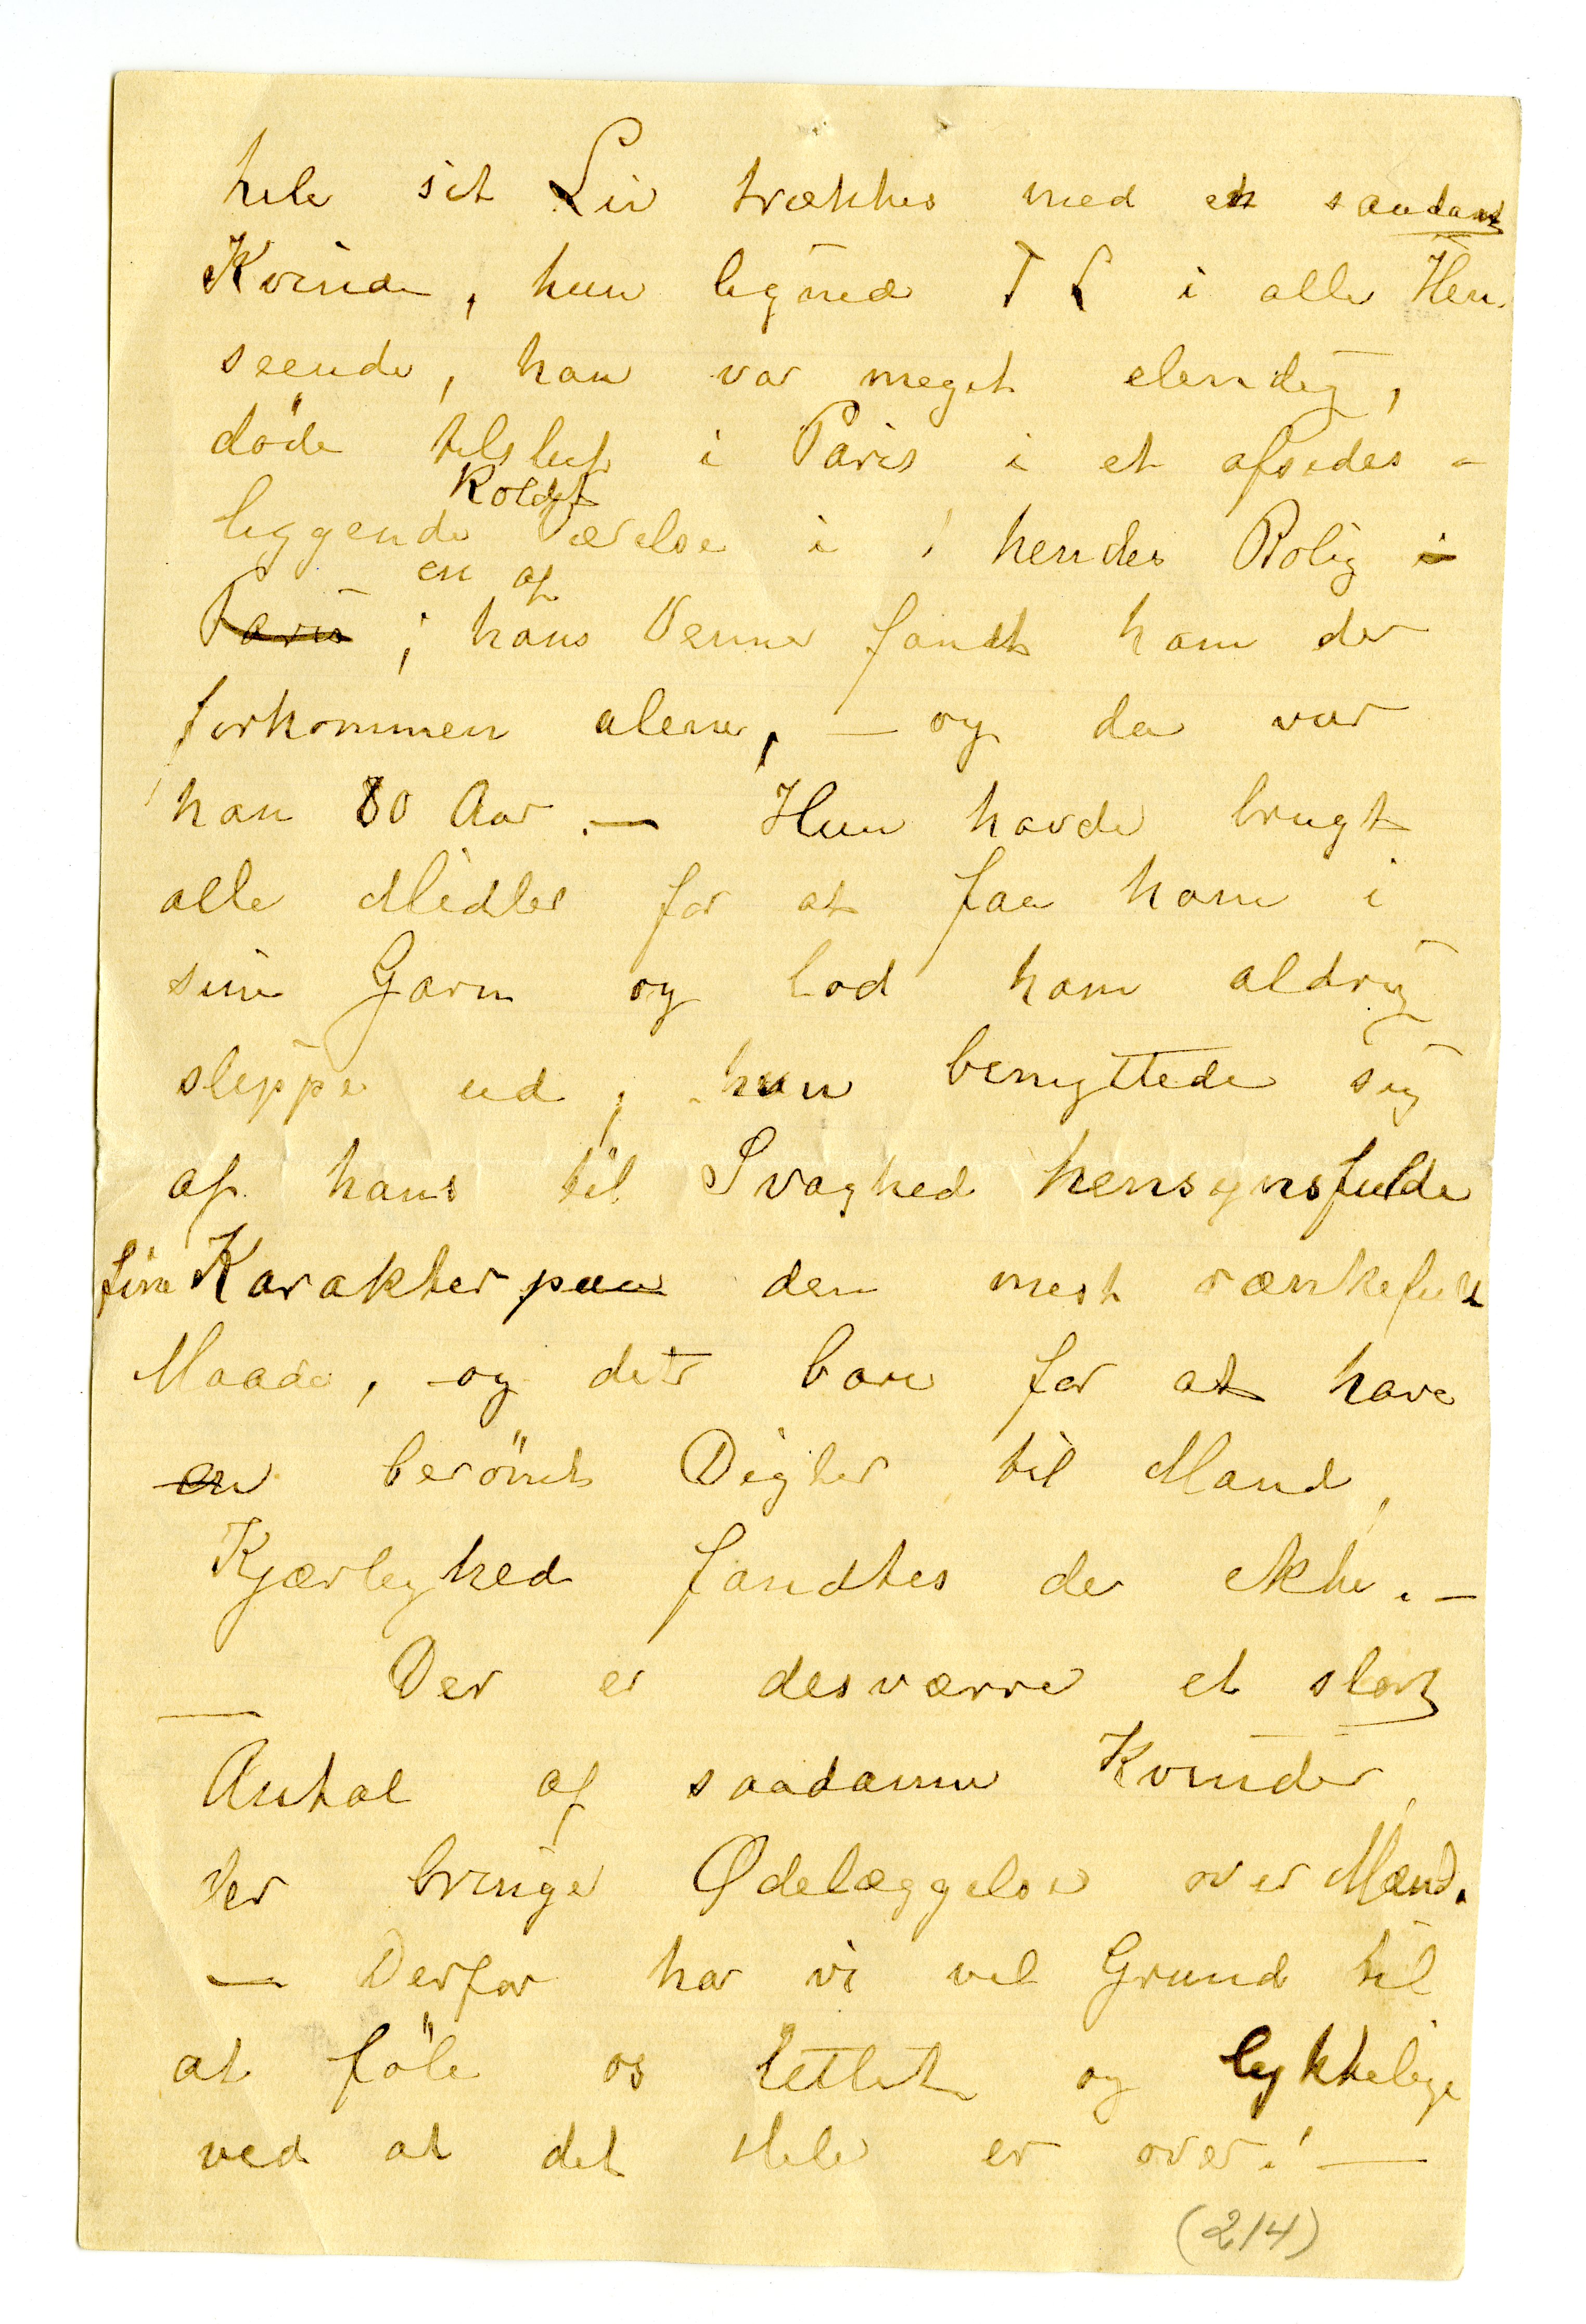 hele sit Liv trækkes med en saadan
Kvinde, hun lignede T L i alle Hen-
seende, han var meget elendig,
døde tilslut i Paris i et afsides-
Koldt
liggende Værelse i hendes Bolig i
en af
Paris ; hans Venner fandt ham der
forkommen alene, — og da var
han 80 Aar. — Hun havde brugt
alle Midler for at faa ham i
sine Garn og lod ham aldrig
slippe ud, hun benyttede sig
af hans til Svaghed hensynsfulde
fine Karakter paa den mest rænkefuld
Maade, og det bare for at have
en berömt Digter til Mand,
Kjærlighed fandtes der ikke. —
— Der er desværre et stort
Antal af saadanne Kvinder,
der bringe Ødelæggelse over Mænd.
— Derfor har vi vel Grund til
at föle os lettet og lykkelige
ved at det Hele er over! —
(214)